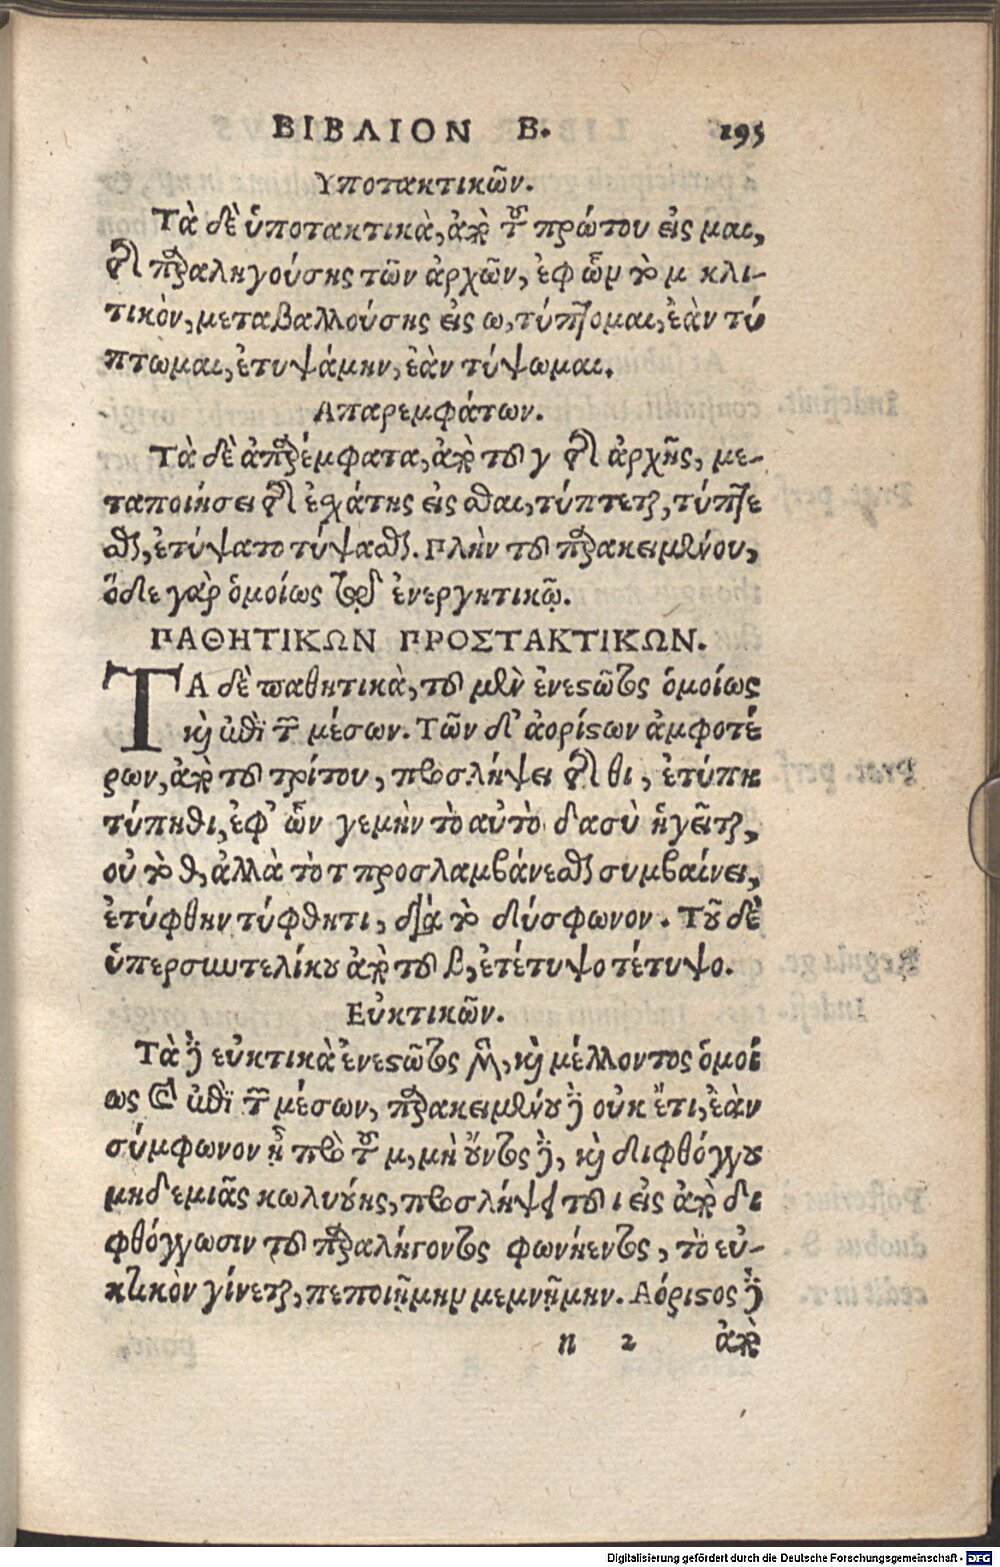 ΒΙΒΛΙΟΝ Β. 195
Υποτακτικῶν.
Τὰ δὲ ὑποτακτικὰ, ἀπὸ τοῦ πρώτου εἰς μαι,
τῆς παραληγούσης τῶν ἀρχῶν, ἐφ ὧν τὸ μ κλι-
τικὸν, μεταβαλλούσης εἰς ω, τύπτομαι, ἐὰν τύ
πτωμαι, ἐτυψάμην, ἐὰν τύψωμαι.
Απαρεμφάτων.
Τὰ δὲ ἀπαρέμφατα, ἀπὸ τοῦ γ τῆς ἀρχῆς, με-
ταποιήσει τῆς ἐσχάτης εἰς σθαι, τύπτεται, τύπτε
σθαι, ἐτύψατο τύψασθαι. Πλὴν τοῦ παρακειμένου,
ὅδε γαρ ὁμοίως τοῖς ἐνεργητικῷ.
ΠΑΘΗΤΙΚΩΝ ΠΡΟΣΤΑΚΤΙΚΩΝ.
ΤΑ δὲ παθητικὰ, τοῦ μὲν ἐνεστῶτος ὁμοίως
καὶ ἐπὶ τῶν μέσων. Τῶν δ' ἀορίστων ἀμφοτέ
ρων, ἀπὸ τοῦ τρίτου, προσλήψει τῆς θι, ἐτύπη
τύπηθι, ἐφ' ὧν γεμὴν τὸ αὐτὸ δασὺ ἡγεῖται,
οὐ τὸ θ, ἀλλὰ τὸ τ προσλαμβάνεσθαι συμβαίνει,
ἐτύφθην τύφθητι, διὰ τὸ δύσφωνον. Τοῦ δὲ
ὑπερσυντελίκου ἀπὸ τοῦ β, ἐτέτυψο τέτυψο.
Εὐκτικῶν.
Τὰ δὲ εὐκτικὰ ἐνεστῶτος μὲν, καὶ μέλλοντος ὁμοί
ως τοῖς ἐπὶ τῶν μέσων, παρακειμένου δὲ οὐκ ἔτι, ἐὰν
σύμφωνον ᾖ πρὸ τοῦ μ, μὴ ὄντος δὲ, καὶ διφθόγγου
μηδεμιᾶς κωλυούσης, προσλήψει τοῦ ι εἰς ἀπὸ δι
φθόγγωσιν τοῦ παραλήγοντος φωνήεντος, τὸ εὐ-
κτικὸν γίνεται, πεποιῄμην μεμνῄμην. Αόριστος δὲ
n 2 ἀπὸ